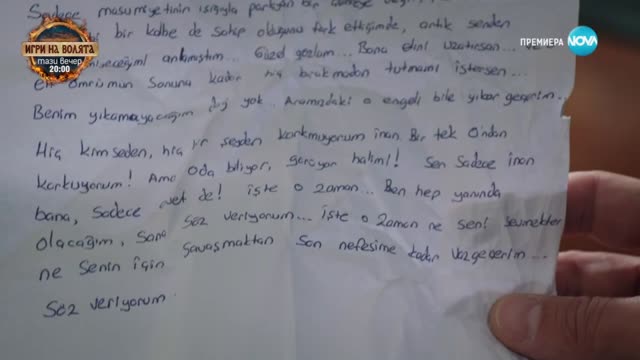 ИГРИ НА ВОЛЯТА
ТАЗИ ВЕЧЕР
20:00
ПРЕМИЕРА NOVA
Sadece, masumiyetinin ışığıyla parlayan bir
bir kalbe de sahip olduğunu fark ettiğimde, artık senden
anlamıştım... Güzel gözlüm... Bana elini uzatırsan...
ömrümün sonuna kadar hiç bırakmadan tutmamı istersen...
Benim yıkamayacağım yok. Aramızdaki o engeli bile yıkar geçerim...
Hiç kimseden, hiç bir şeyden korkmuyorum inan. Bir tek O'ndan
korkuyorum! Ama O da biliyor, görüyor halimi! Sen sadece inan
bana, sadece evet de! İşte o zaman... Ben hep yanında
olacağım, sana söz veriyorum... işte o zaman ne seni sevmekten
ne senin için savaşmaktan son nefesime kadar vazgeçerim...
Söz veriyorum.